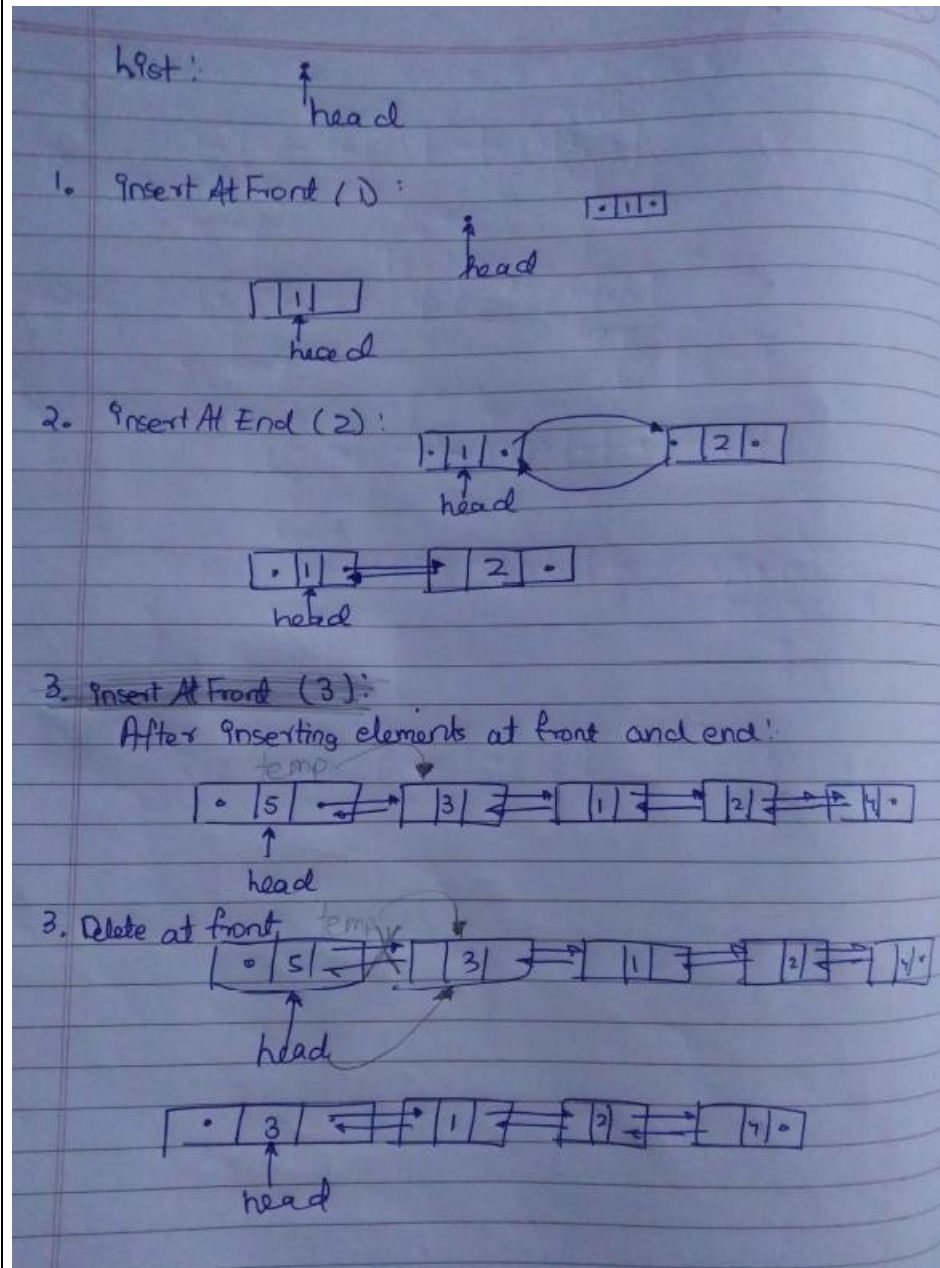 List:
head
1. Insert At Front (1):
• 1 •
head
1
head
2. Insert At End (2):
• 1 • • 2 •
head
• 1 2 •
head
3. Insert At Front (3):
After inserting elements at front and end:
temp
• 5 3 1 2 4 •
head
3. Delete at front, temp
• 5 3 1 2 4 •
head
• 3 1 2 4 •
head